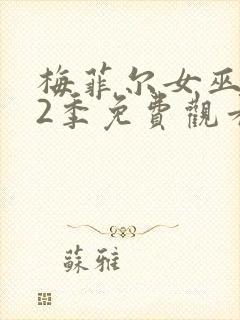 梅菲尔女巫
2季免費觀看
蘇雅